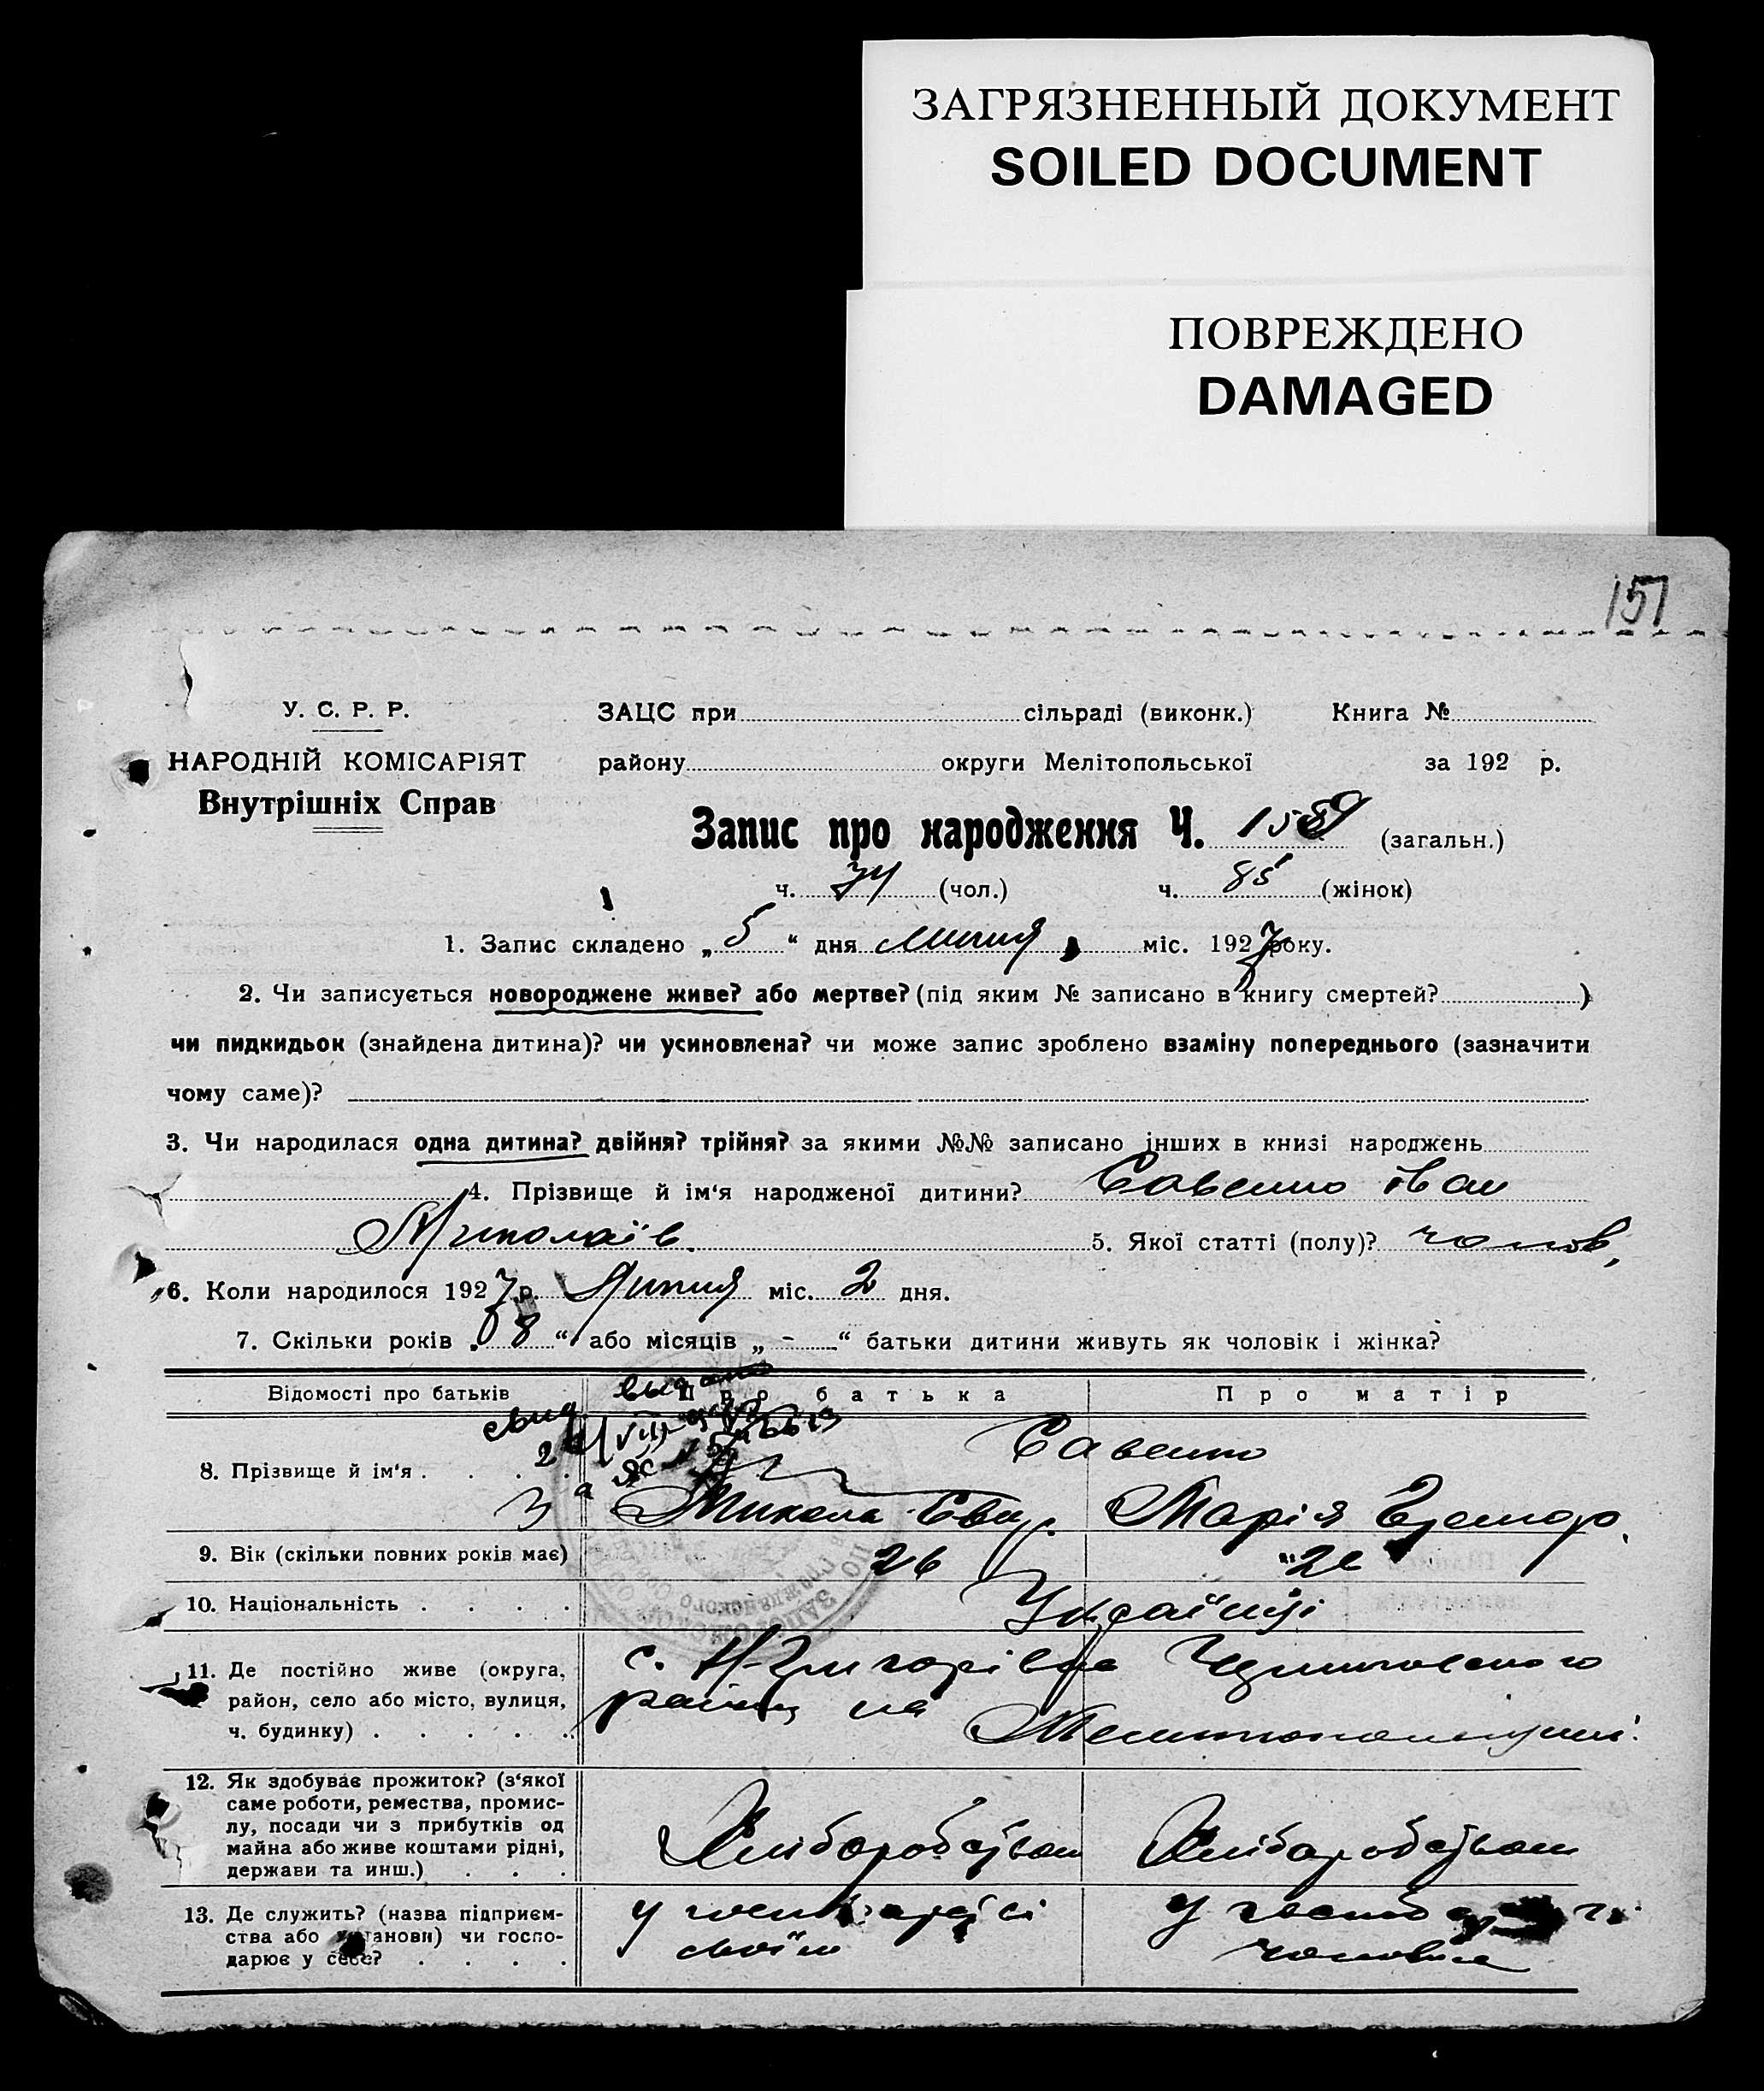 ЗАГРЯЗНЕННЫЙ ДОКУМЕНТ
SOILED DOCUMENT
ПОВРЕЖДЕНО
DAMAGED
151
У. С. Р. Р.
НАРОДНІЙ КОМІСАРІЯТ
Внутрішніх Справ
ЗАЦС при сільраді (виконк.) Книга №
району округи Мелітопольської за 192 р.
Запис про народження Ч. 159 (загальн.)
ч. 74 (чол.) ч. 85 (жінок)
1. Запис складено „ 5 “ дня Липня міс. 1927 року.
2. Чи записується новороджене живе? або мертве? (під яким № записано в книгу смертей? )
чи пидкидьок (знайдена дитина)? чи усиновлена? чи може запис зроблено взаміну попереднього (зазначити
чому саме)?
3. Чи народилася одна дитина? двійня? трійня? за якими №№ записано інших в книзі народжень
4. Прізвище й ім‘я народженої дитини? Савенко Іван
Миколаїв. 5. Якої статті (полу)? чолов,
6. Коли народилося 1927 р. Липня міс. 2 дня.
7. Скільки років „ 8 “ або місяців „ - “ батьки дитини живуть як чоловік і жінка?
Відомості про батьків Про батька Про матір
8. Прізвище й ім‘я . . . . Савенко
Микола Марія
9. Вік (скільки повних років має) 26 26
10. Національність . . . . Українці
11. Де постійно живе (округа,
район, село або місто, вулиця,
ч. будинку) . . . . .
с. Н-Григорівка
району на
Мелитопольщині
12. Як здобуває прожиток? (з‘якої
саме роботи, ремества, промис-
лу, посади чи з прибутків од
майна або живе коштами рідні,
держави та инш.) . . .
Хліборобством Хліборобством
13. Де служить? (назва підприєм-
ства або установи) чи госпо-
дарює у себе? . . . .
у господарстві
своїм
у
чоловіка